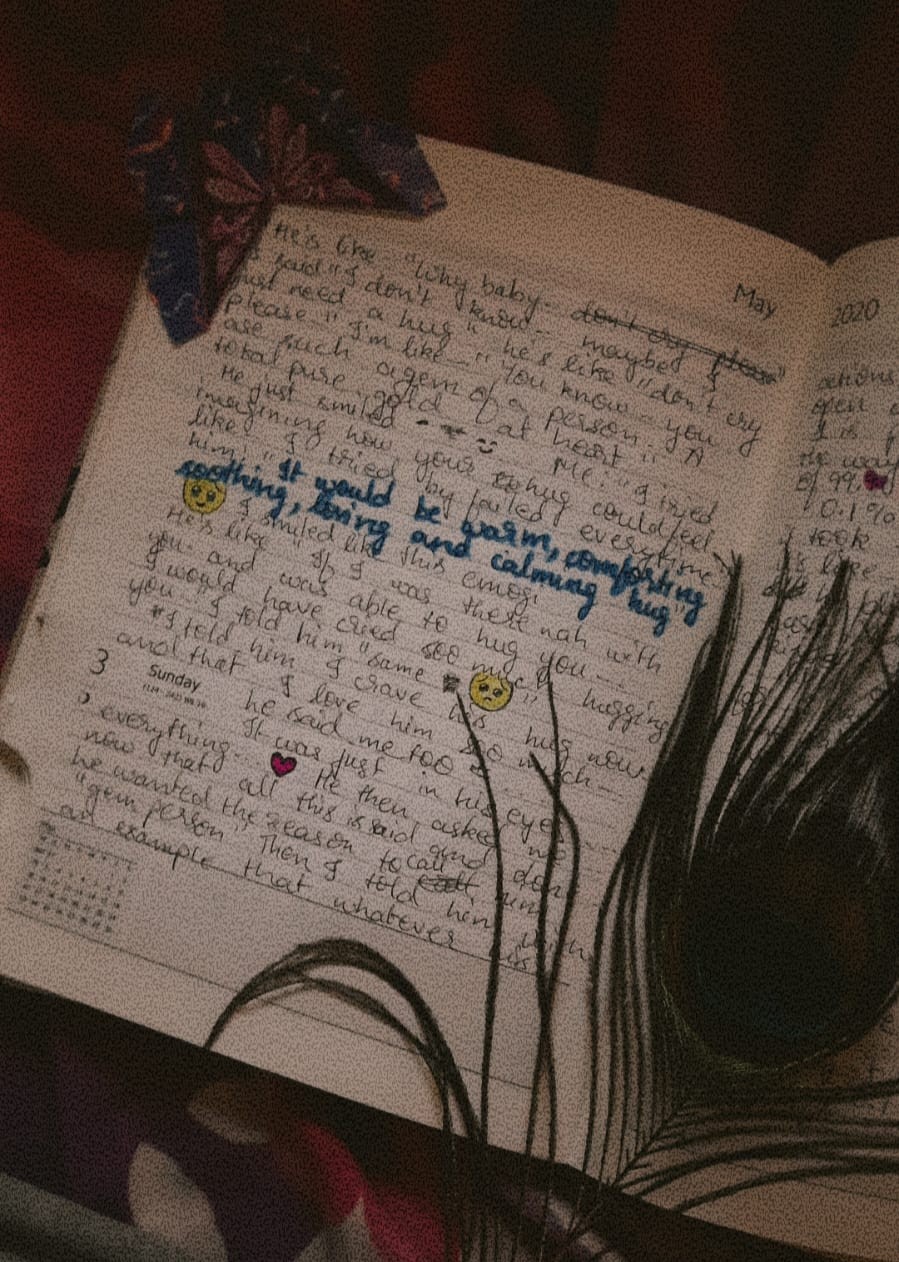 May
2020
He's like "Why baby.. don't cry please"
I said "I don't know... maybe I
just need a hug" he's like "don't cry
please" I'm like... "You know you
are such a gem of a person. A
total pure gold at heart"
He just smiled
Me: I tried
imagining how your hug could feel
like. I tried but failed everytime
him "It would be warm, comforting
soothing, loving and calming hug"
I smiled like this emoji
He's like "If I was there nah with
you and was able to hug you...
I would have cried soo much hugging
you" I told him "same"
I told him I crave his hug now
and that I love him soo much...
3 Sunday
he said me too
It was just in his eyes
everything...
He then asked me
now that all this is said and done
he wanted the reason to call him
"gem person" Then I told him with
an example that whatever his
actions
open
I is
the way
of 99.
0.1%
took
like